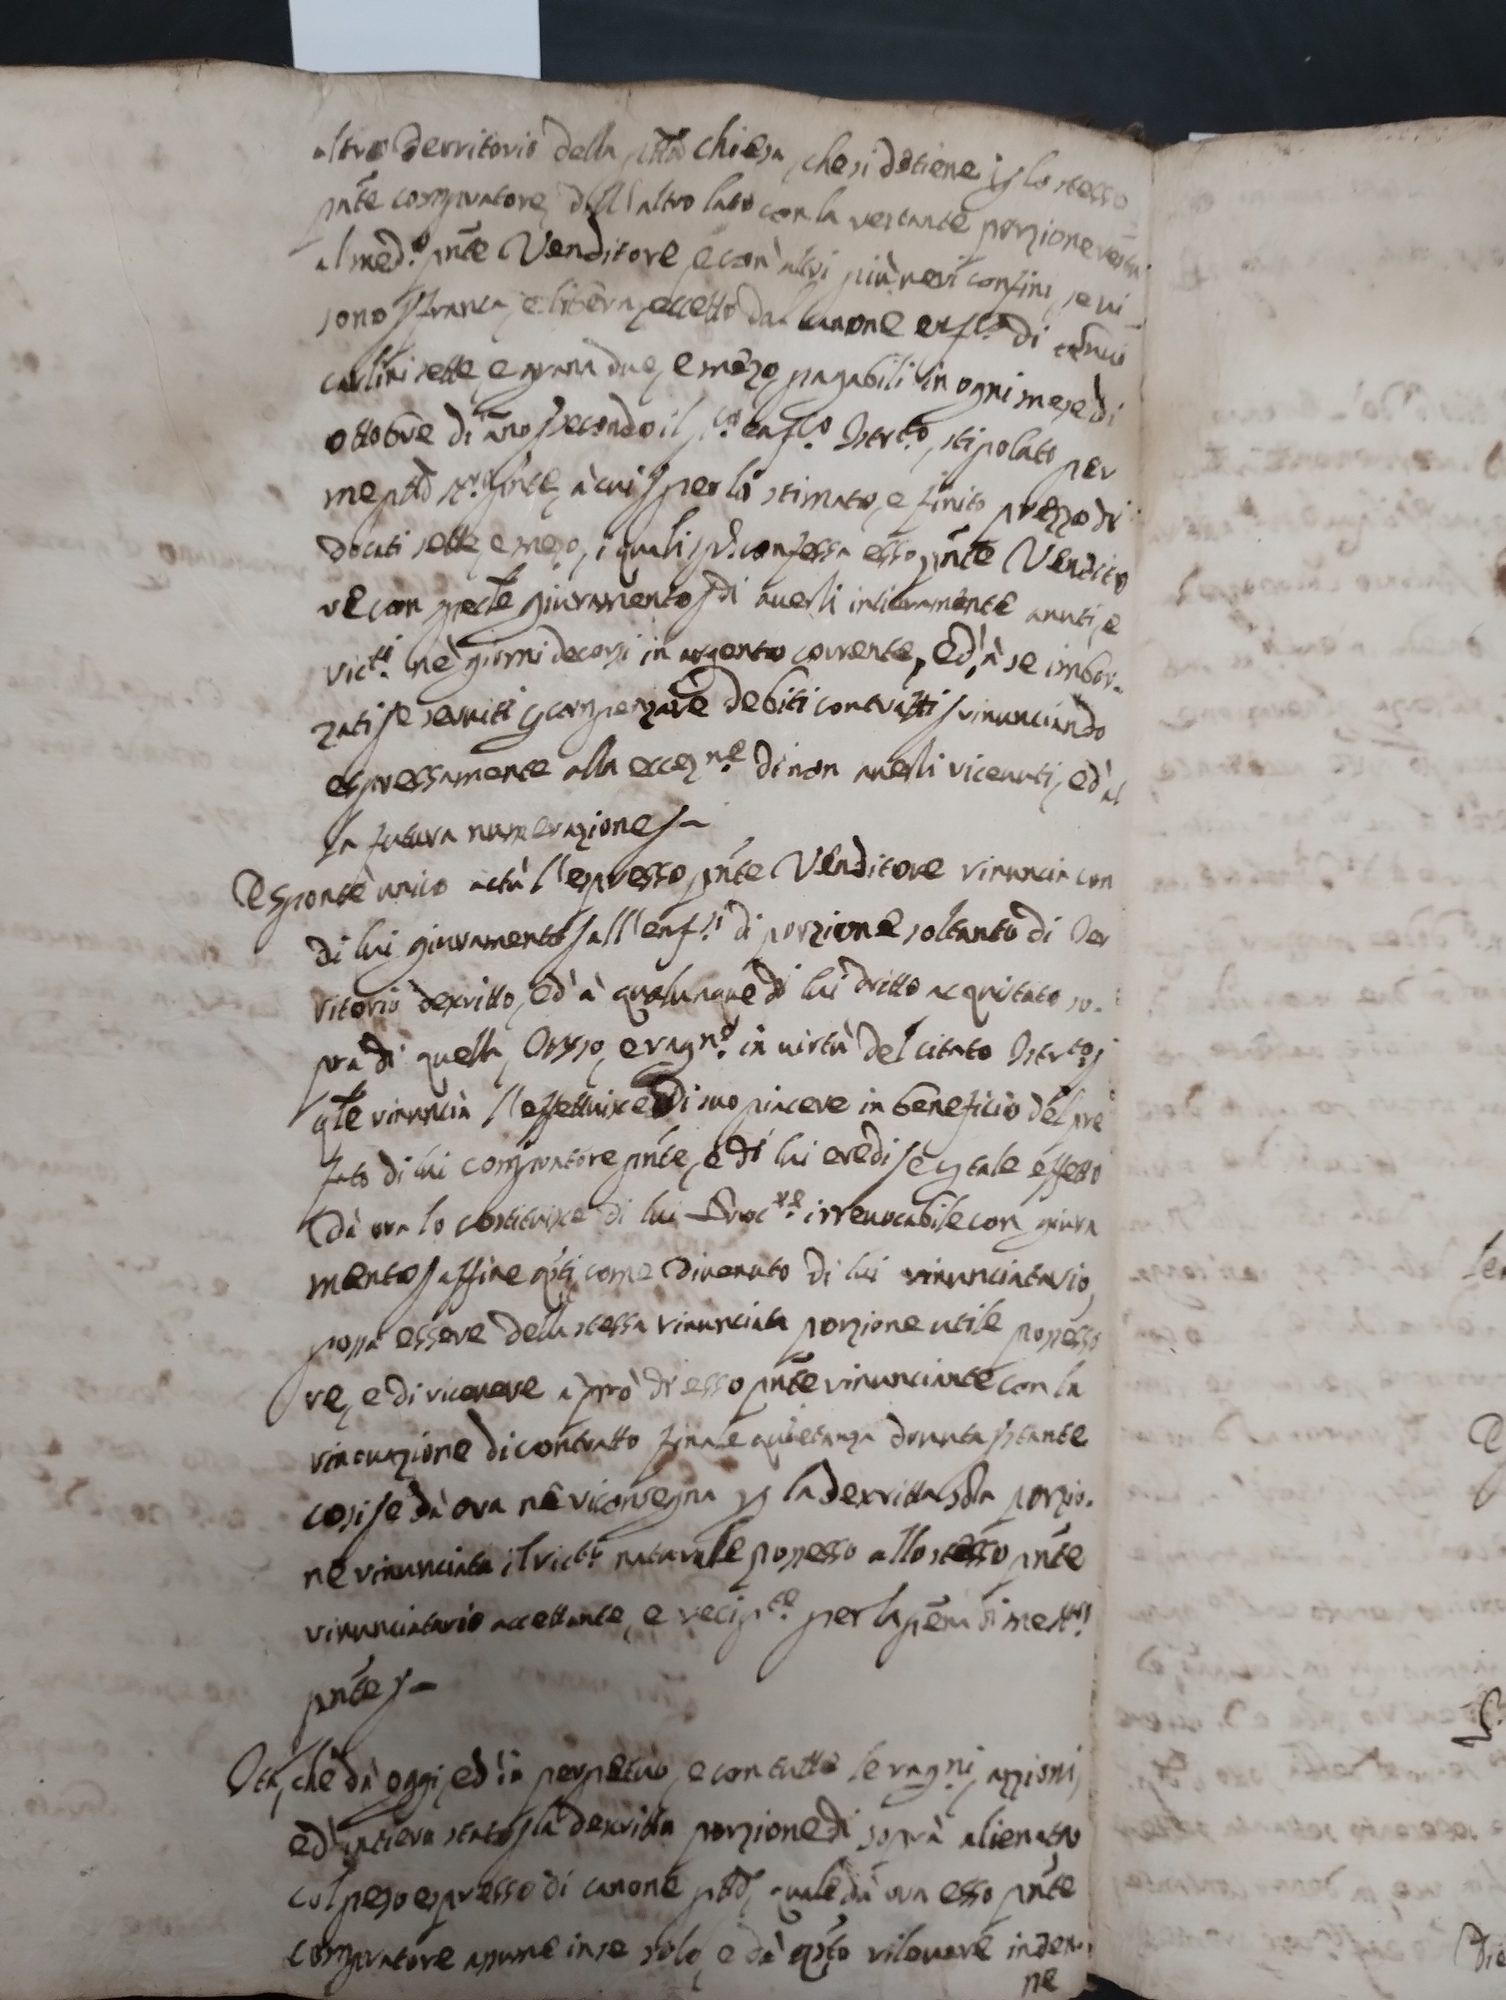 altro Territorio della ptta Chiesa, che si detiene p lo stesso
pnte compratore, dall'altro lato con la restante porzione resta
al med.o pnte Venditore, e con altri più veri confini, se vi
sono, franca, e libera, eccetto dal canone enf.co di annui
carlini sette, e grana due, e mezo, pagabili in ogni mese di
ottobre di anno, secondo il enf.co Istr.to, stipolato per
me pnte, à cui per lo stimato, e finito prezzo di
docati sette, e mezo, i quali confessa esso pnte Vendito
re con giuramento di averli intieramente avuti, e
ric.ti ne' giorni decorsi in argento corrente, ed à se imbor-
zati, e serviti p compenzare debiti contratti, rinunciando
espressamente alla eccez.ne di non averli ricevuti, ed al
la futura numerazione, -
E sponte unico actu l'espresso pnte Venditore rinuncia con
di lui giuramento, all'enf.si di porzione soltanto di Ter
ritorio descritto, ed à qualunque di lui dritto acquistato so-
pra di quella, Jusso, e rag.ne in virtù del citato Istr.to,
qle rinuncia l'effettuisce di suo piacere in beneficio del pre
fato di lui compratore pnte, e di lui eredi, e p tale effetto
da ora lo costituisce di lui Proc.re irrevocabile con giura
mento, affine come divenuto di lui rinunciatario,
possa essere della stessa rinunciata porzione utile possesso
re, e di ricevere à prò di esso pnte rinunciante con la
rinovazione di contratto finale quietanza dovuta, stante
così, e da ora ne riconsegna p la descritta porzio-
ne rinunciata il naturale possesso allo stesso pnte
rinunciatario accettante, e recip.te per la penna di me
pnte, -
Ita, che da oggi, ed in perpetuo, e con tutte le ragni, azzioni,
ed intiero stato, la descritta porzione di sopra alienatto
col peso espresso di canone pttd, quale da ora esso pnte
compratore assume in se solo, e da qsto rilevare inden-
ne